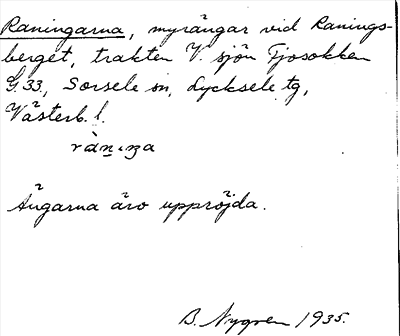 Raningarna, myrängar vid Ranings-
berget, trakten V. sjön Tjosokken
G.33, Sorsele sn, Lycksele tg,
Västerb. l.
ràṇıŋa
Ängarna äro uppröjda.
B. Nygren 1935.